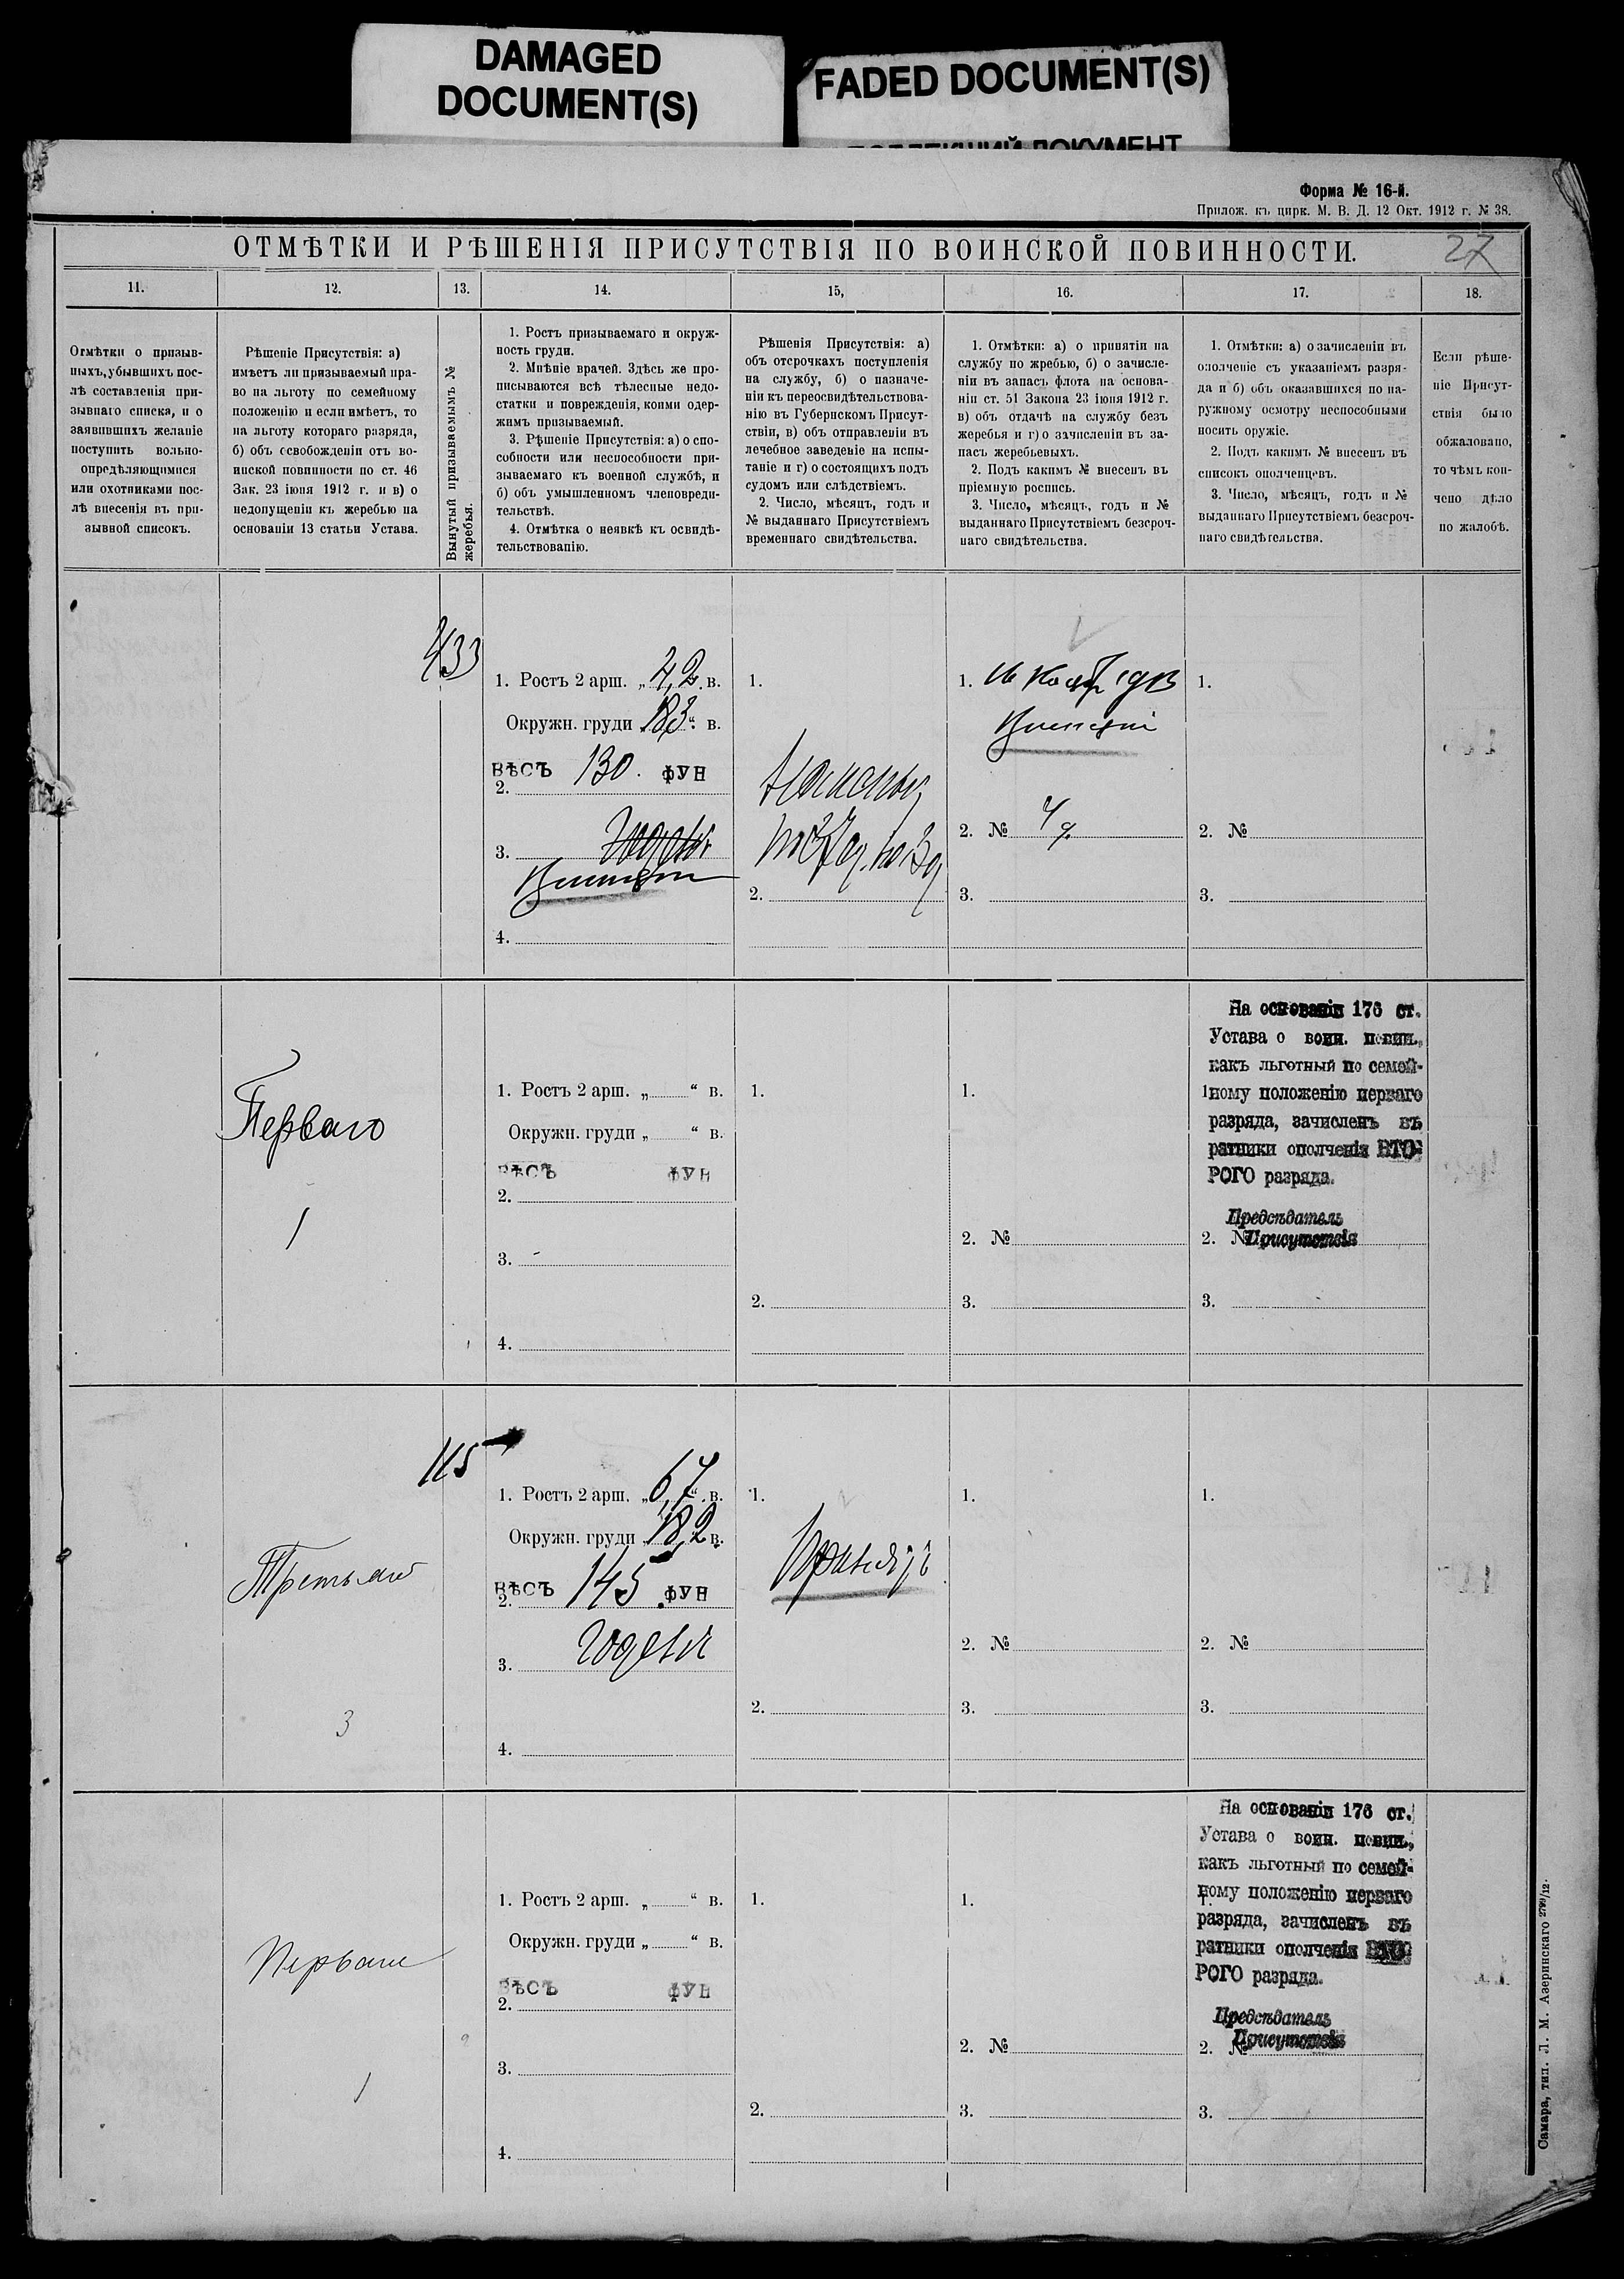 DAMAGED
DOCUMENT(S)
FADED DOCUMENT(S)
ДОКУМЕНТ
Форма № 16-й.
Прилож. къ цирк. М. В. Д. 12 Окт. 1912 г. № 38.
ОТМѢТКИ И РѢШЕНІЯ ПРИСУТСТВІЯ ПО ВОИНСКОЙ ПОВИННОСТИ.
27
11.
12.
13.
14.
15,
16.
17.
18.
Отмѣтки о призыв-
ныхъ, убывшихъ пос-
лѣ составленія при-
зывнаго списка, и о
заявившихъ желаніе
поступить вольно-
опредѣляющимися
или охотниками пос-
лѣ внесенія въ при-
зывной списокъ.
Рѣшеніе Присутствія: а)
имѣетъ ли призываемый пра-
во на льготу по семейному
положенію и если имѣетъ, то
на льготу котораго разряда,
б) объ освобожденіи отъ во-
инской повинности по ст. 46
Зак. 23 іюня 1912 г. и в) о
недопущеніи къ жеребью на
основаніи 13 статьи Устава.
Вынутый призываемымъ №
жеребья.
1. Ростъ призываемаго и окруж-
ность груди.
2. Мнѣніе врачей. Здѣсь же про-
писываются всѣ тѣлесные недо-
статки и поврежденія, коими одер-
жимъ призываемый.
3. Рѣшеніе Присутствія: а) о спо-
собности или неспособности при-
зываемаго къ военной службѣ, и
б) объ умышленномъ членовреди-
тельствѣ.
4. Отмѣтка о неявкѣ къ освидѣ-
тельствованію.
Рѣшенія Присутствія: а)
объ отсрочкахъ поступленія
на службу, б) о назначе-
ніи къ переосвидѣтельствова-
нію въ Губернскомъ Присут-
ствіи, в) объ отправленіи въ
лечебное заведеніе на испы-
таніе и г) о состоящихъ подъ
судомъ или слѣдствіемъ.
2. Число, мѣсяцъ, годъ и
№ выданнаго Присутствіемъ
временнаго свидѣтельства.
1. Отмѣтки: а) о принятіи на
службу по жребью, б) о зачисле-
ніи въ запасъ флота на основа-
ніи ст. 51 Закона 23 іюня 1912 г.
в) объ отдачѣ на службу безъ
жеребья и г) о зачисленіи въ за-
пасъ жеребьевыхъ.
2. Подъ какимъ № внесенъ въ
пріемную роспись.
3. Число, мѣсяцъ, годъ и №
выданнаго Присутствіемъ безсроч-
наго свидѣтельства.
1. Отмѣтки: а) о зачисленіи въ
ополченіе съ указаніемъ разря-
да и б) объ оказавшихся по на-
ружному осмотру неспособными
носить оружіе.
2. Подъ какимъ № внесенъ въ
списокъ ополченцевъ.
3. Число, мѣсяцъ, годъ и №
выданнаго Присутствіемъ безсроч-
наго свидѣтельства.
Если рѣше-
ніе Присут-
ствія было
обжаловано,
то чѣмъ кон-
чено дѣло
по жалобѣ.
433
1. Ростъ 2 арш. „4,2“ в.
Окружн. груди 18,3“ в.
ВѢСЪ 130. ФУН
2.
3. Годенъ
4.
1.
2.
1. 1913
2. №
3.
1.
2. №
3.
Перваго
1
1. Ростъ 2 арш. „ “ в.
Окружн. груди „ “ в.
ВѢСЪ ФУН
2.
3.
4.
1.
2.
1.
2. №
3.
На основаніи 176 ст.
Устава о воин. повин.,
какъ льготный по семей-
1. ному положенію перваго
разряда, зачисленъ въ
ратники ополченія ВТО-
РОГО разряда.
Предсѣдатель
2. № Присутствія
3.
115
Третьяго
3
1. Ростъ 2 арш. „6,7“ в.
Окружн. груди 18,2 в.
ВѢСЪ 145 ФУН
2.
3. Годенъ
4.
1.
2.
1.
2. №
3.
1.
2. №
3.
Перваго
1
1. Ростъ 2 арш. „ “ в.
Окружн. груди „ “ в.
ВѢСЪ ФУН
2.
3.
4.
1.
2.
1.
2. №
3.
На основаніи 176 ст.
Устава о воин. повин.,
какъ льготный по семей-
1. ному положенію перваго
разряда, зачисленъ въ
ратники ополченія ВТО-
РОГО разряда.
Предсѣдатель
Присутствія
2. №
3.
Самара, тип. Л. М. Азеринскаго 2799/12.